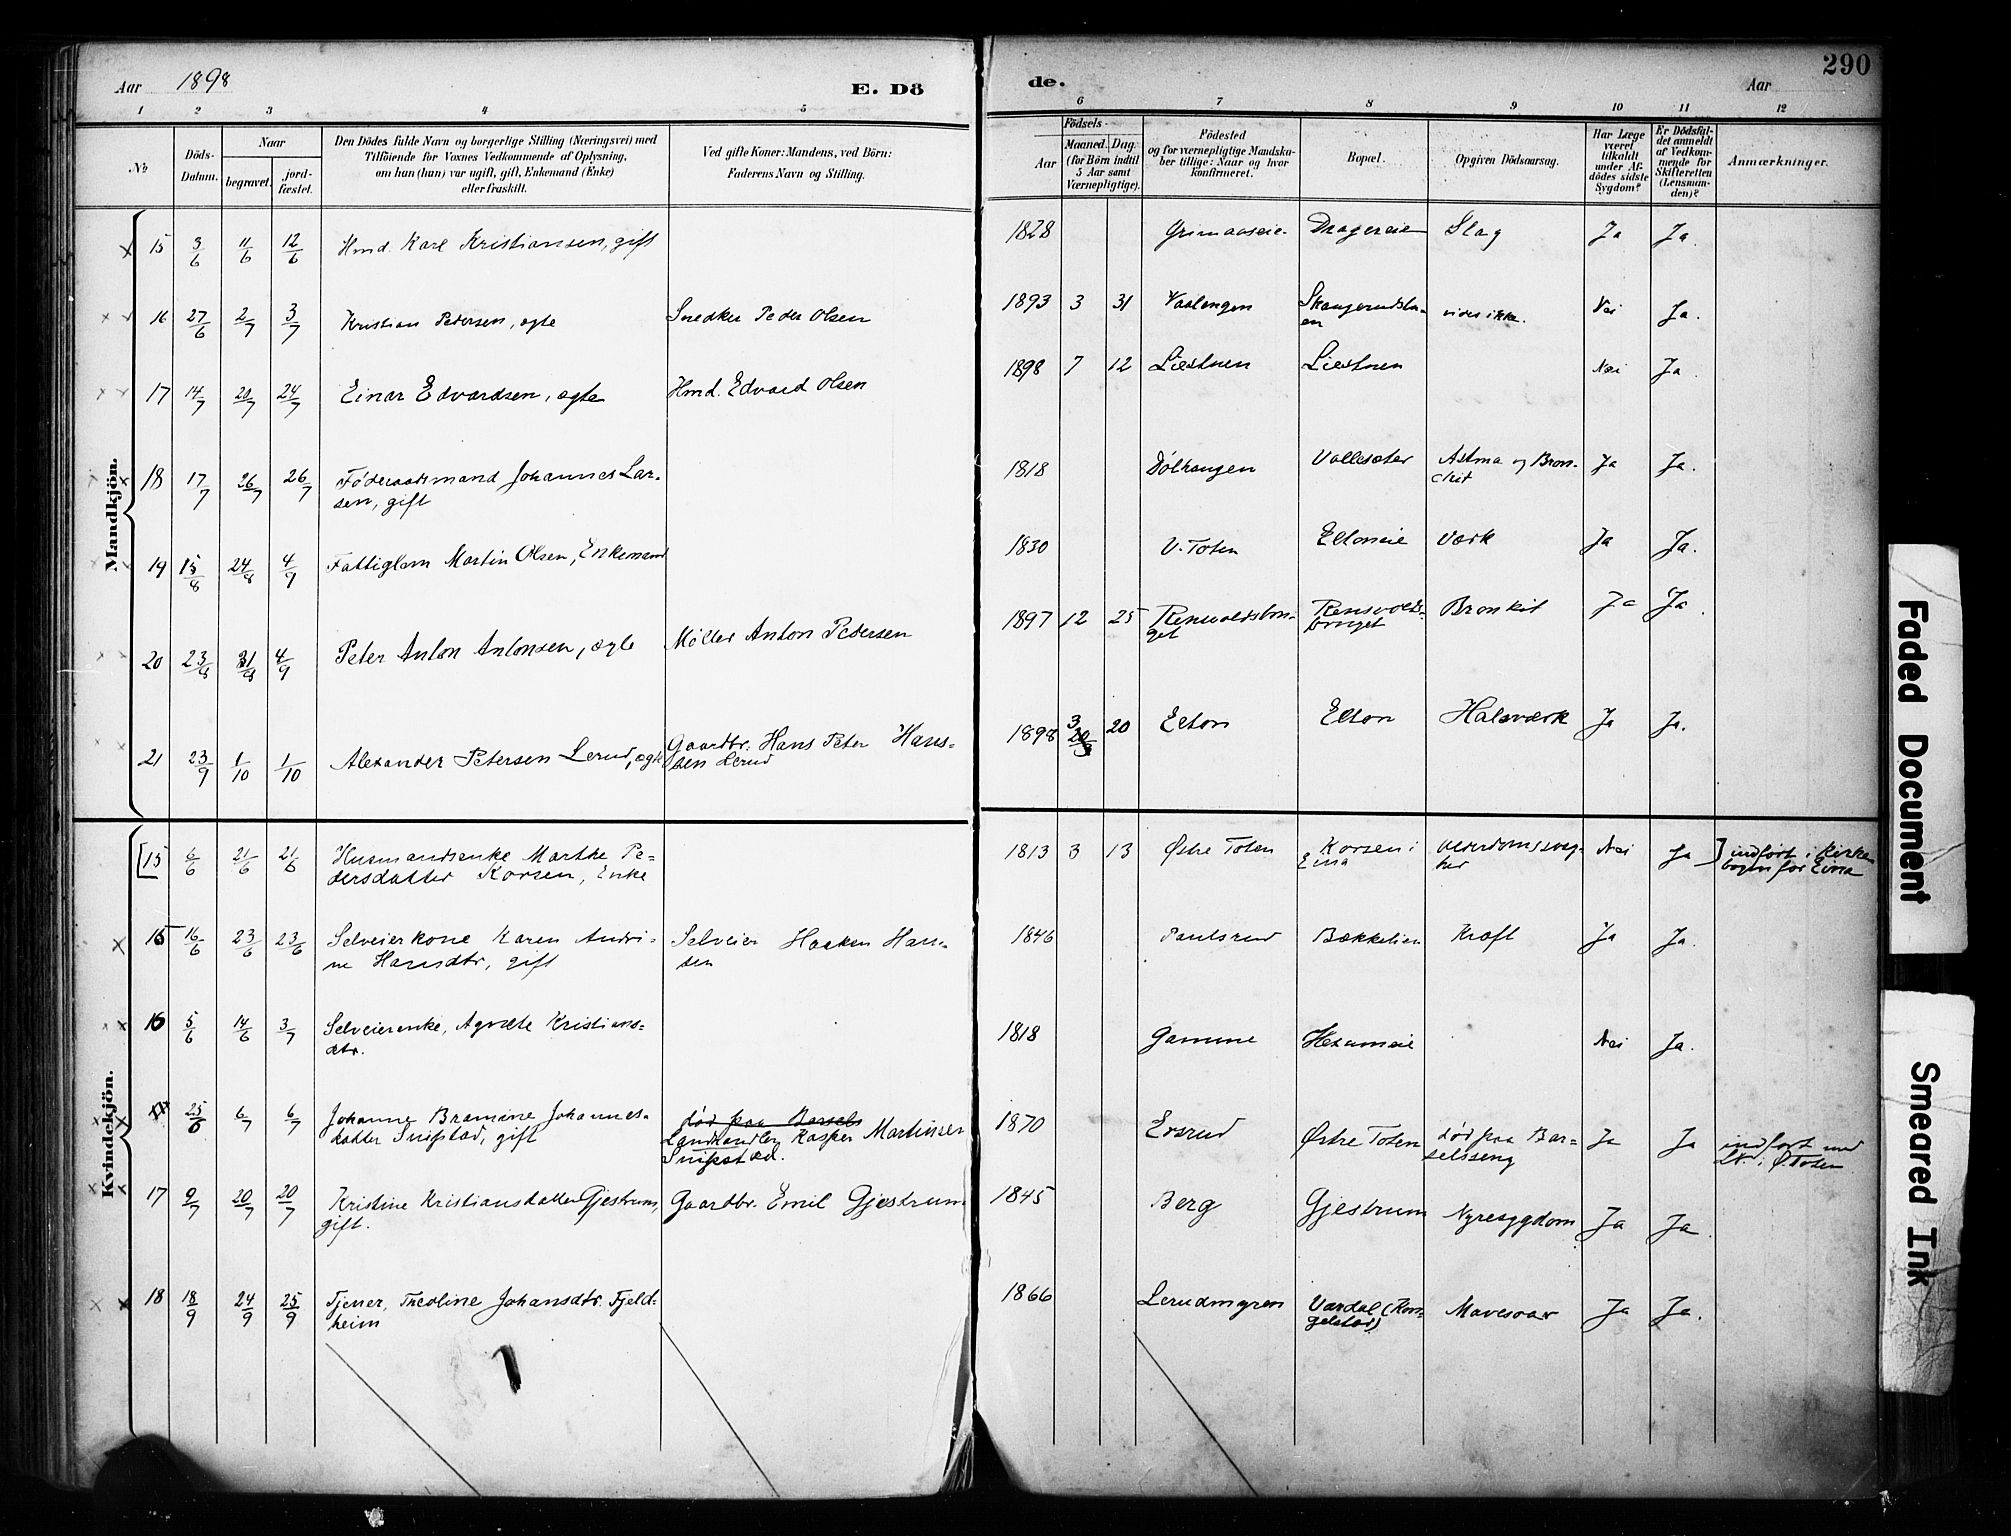 Aar 1898
E. Dö
de.
Aar
290
1 2 3 4 5 6 7 8 9 10 11 12
No
Döds-Datum.
Naar
begravet.
jord-fæstet.
Den Dödes fulde Navn og borgerlige Stilling (Næringsvei) med
Tilföiende for Voxnes Vedkommende af Oplysning,
om han (hun) var ugift, gift, Enkemand (Enke)
eller fraskilt.
Ved gifte Koner: Mandens, ved Börn:
Faderens Navn og Stilling.
Födsels-
Aar
Maaned. Dag.
(for Börn indtil
5 Aar samt
Værnepligtige).
Födested
og for værnepligtige Mandska-
ber tillige: Naar og hvor
konfirmeret.
Bopæl.
Opgiven Dödsaarsag.
Har Læge
været
tilkaldt
under Af-
dödes sidste
Sygdom?
Er Dödsfal-
det anmeldt
af Vedkom-
mende for
Skifteretten
(Lensman-
den)?
Anmærkninger.
Mandkjön.
15 3/6 11/6 12/6 Hmd. Karl Kristiansen, gift 1828 Grimaaseie Dragereie Slag Ja Ja.
16 27/6 2/7 3/7 Kristian Pedersen, ægte Snedker Peder Olsen 1893 3 31 Vaalengen vides ikke. Nei Ja.
17 14/7 20/7 24/7 Einar Edvardsen, ægte Hmd. Edvard Olsen 1898 7 12 Liestuen Liestuen Nei Ja.
18 17/7 26/7 26/7 Føderaadsmand Johannes Lar-
sen, gift 1818 Dølhaugen Vollesæter Astma og Bron-
chit Ja Ja.
19 15/8 24/8 4/9 Fattiglem Martin Olsen, Enkemand 1830 V. Toten Eltoneie Værk Ja Ja.
20 23/8 31/8 4/9 Peter Anton Antonsen, ægte Møller Anton Pedersen 1897 12 25 Rensvoldsbru-
get Rensvolds-
bruget Bronkit Ja Ja.
21 23/9 1/10 1/10 Alexander Petersen Lerud, ægte Gaardbr. Hans Peter Hans-
sen Lerud 1898 3 20 Elton Elton Halsværk Ja Ja.
Kvindekjön.
[15 6/6 21/6 21/6 Husmandsenke Marthe Pe-
dersdatter Korsen, Enke 1813 3 13 Østre Toten Korsen i
Eina Alderdomssvag-
hed Nei Ja ] indført i Kirke
bogen for Eina
15 16/6 23/6 23/6 Selveierkone Karen Andri-
ne Hansdtr, gift Selveier Haaken Han-
sen 1846 Paulsrud Bækkelien Kræft Ja Ja.
16 5/6 14/6 3/7 Selveierenke, Agnete Kristians-
dtr. 1818 Gamme Hexumeie Nei Ja.
25/6 6/7 6/7 Johanne Bramine Johannes-
datter Snipstad, gift død paa Barsels
Landhandler Kasper Martinsen
Snipstad. 1870 Ersrud Østre Toten død paa Bar-
selsseng Ja Ja indført med
Lt. i Ø. Toten
17 9/7 20/7 20/7 Kristine Kristiansdatter Gjestrum,
gift. Gaardbr. Emil Gjestrum 1845 Berg Gjestrum Nyresygdom Ja Ja.
18 18/9 24/9 25/9 Tjener, Theoline Johansdtr. Fjeld-
heim 1866 Lerudmyren Vardal Mavesaar Ja Ja.
Faded Document
Smeared Ink